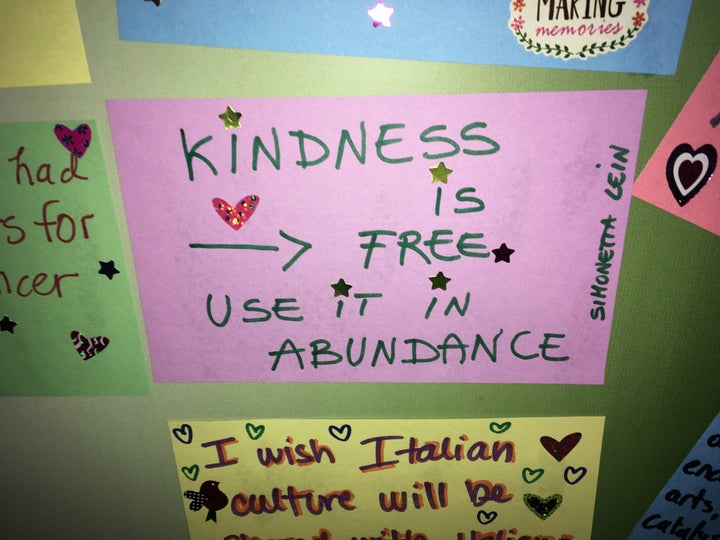 MAKING
memories
had
s for
ncer
KINDNESS
IS
FREE
USE IT IN
ABUNDANCE
SIMONETTA LEIN
I wish Italian
culture will be
arts,